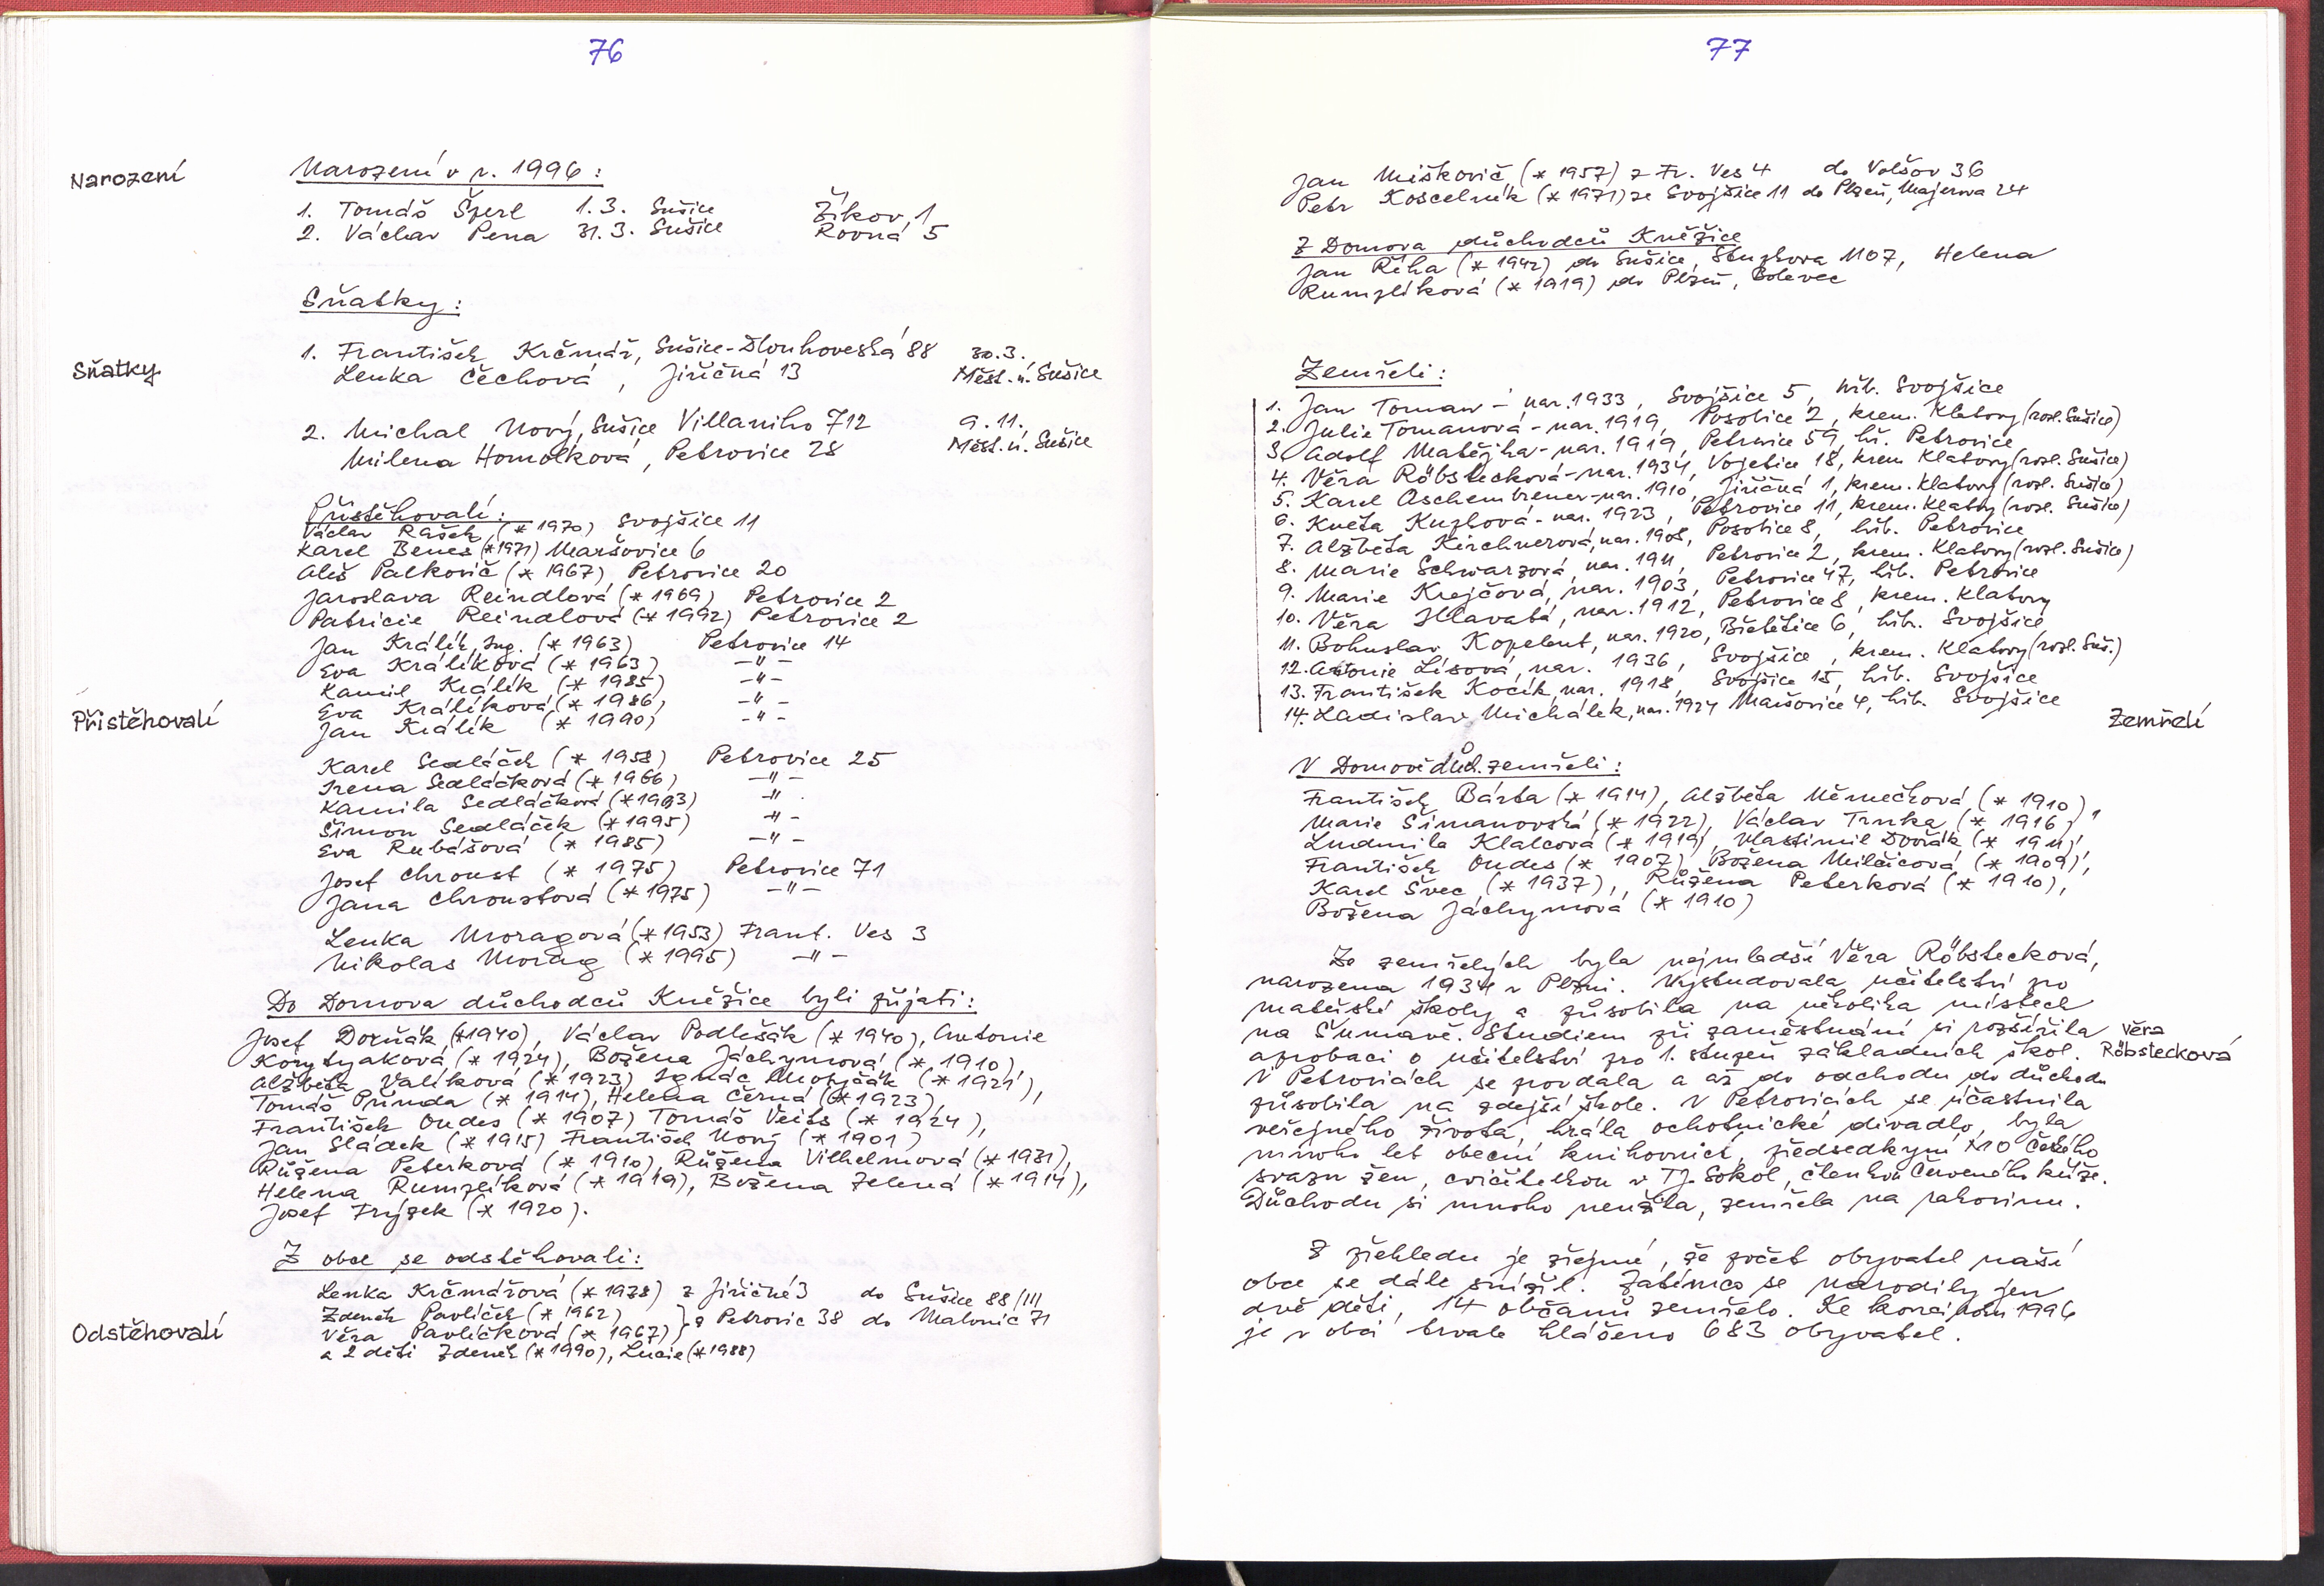 76
Narození
Narození v r. 1996:
1. Tomáš Šperl 1.3. Sušice Žíkov 1
2. Václav Pena 31.3. Sušice Rovná 5
Sňatky:
Sňatky
1. František Krčmář, Sušice-Dlouhoveská 88 30.3.
Lenka Čechová, Jiřičná 13 Měst.ú. Sušice
2. Michal Nový, Sušice Villaniho 712 9.11.,
Milena Homolková, Petrovice 28 Měst.ú. Sušice
Přistěhovalí:
Václav Rašek (*1970) Svojšice 11
Karel Beneš (*1971) Maršovice 6
Aleš Palkovič (*1967) Petrovice 20
Jaroslava Reindlová (*1969) Petrovice 2
Patricie Reindlová (*1992) Petrovice 2
Jan Králík, Ing. (*1963) Petrovice 14
Eva Králíková (*1963) -"-
Kamil Králík (*1985) -"-
Eva Králíková (*1986) -"-
Jan Králík (*1990) -"-
Přistěhovalí
Karel Sedláček (*1958) Petrovice 25
Irena Sedláčková (*1966) -"-
Kamila Sedláčková (*1993) -"-
Šimon Sedláček (*1995) -"-
Eva Rubášová (*1985) -"-
Josef Chroust (*1975) Petrovice 71
Jana Chroustová (*1975) -"-
Lenka Moragová (*1953) Frant. Ves 3
Nikolas Morag (*1995) -"-
Do Domova důchodců Kněžice byli přijati:
Josef Dorňák (*1940), Václav Podlešák (*1940), Antonie
Korytyaková (*1924), Božena Jáchymová (*1910),
Alžběta Valíková (*1923) Ignác (*1921),
Tomáš Průnda (*1914), Helena Černá (*1923),
František Ondes (*1907) Tomáš Veits (*1924),
Jan Sládek (*1915) František Nový (*1901)
Růžena Peterková (*1910), Růžena Vilhelmová (*1931),
Helena Rumplíková (*1919), Božena Zelená (*1914),
Josef Frýzek (*1920).
Z obce se odstěhovali:
Lenka Krčmářová (*1978) z Jiřičné 3 do Sušice 88/III
Zdeněk Pavlíček (*1962) } z Petrovic 38 do Malonic 71
Odstěhovalí
Věra Pavlíčková (*1967)
a 2 děti Zdeněk (*1990), Lucie (*1988)
77
Jan Miškovič (*1957) z Fr. Ves 4 do Volšov 36
Petr Koscelník (*1971) ze Svojšice 11 do Plzeň, Majerova 24
Z Domova důchodců Kněžice
Jan Říha (*1942) do Sušice, Stuzkova 1107, Helena
Rumplíková (*1919) do Plzeň, Bolevec
Zemřeli:
1. Jan Toman - nar. 1933, Svojšice 5, hřb. Svojšice
2. Julie Tomanová - nar. 1919, Posobice 2, krem. Klatovy (rozl. Sušice)
3. Adolf Matějka - nar. 1919, Petrovice 59, hř. Petrovice
4. Věra Röbstecková - nar. 1934, Vojetice 18, krem Klatovy (rozl. Sušice)
5. Karel Aschenbrener - nar. 1910, Jiřičná 1, krem. Klatovy (rozl. Sušice)
6. Květa Kuzbová - nar. 1923, Petrovice 11, krem. Klatovy (rozl. Sušice)
7. Alžběta Kirchnerová, nar. 1908, Posobice 8, hřb. Petrovice
8. Marie Schwarzová, nar. 1911, Petrovice 2, krem. Klatovy (rozl. Sušice)
9. Marie Krejčová, nar. 1903, Petrovice 47, hřb. Petrovice
10. Věra Hlavatá, nar. 1912, Petrovice 8, krem. Klatovy
11. Bohuslav Kopelent, nar. 1920, Břetětice 6, hřb. Svojšice
12. Antonie Lísová, nar. 1936, Svojšice, krem. Klatovy (rozl. Suš.)
13. František Kocík, nar. 1918, Svojšice 15, hřb. Svojšice
14. Ladislav Michálek, nar. 1924 Maršovice 4, hřb. Svojšice
Zemřelí
V Domově důch. zemřeli:
František Bárta (*1914), Alžběta Němečková (*1910),
Marie Šimanovská (*1922), Václav Trnka (*1916),
Ludmila Klalcová (*1919), Vlastimil Dvořák (*1911),
František Ondes (*1907), Božena Milčicová (*1909),
Karel Švec (*1937), Růžena Peterková (*1910),
Božena Jáchymová (*1910)
Ze zemřelých byla nejmladší Věra Röbstecková,
narozena 1934 v Plzni. Vystudovala učitelství pro
mateřské školy a působila na několika místech
na Šumavě. Studiem při zaměstnání si rozšířila
Věra
Röbstecková
aprobaci o učitelství pro 1. stupeň základních škol.
V Petrovicích se provdala a až do odchodu do důchodu
působila na zdejší škole. V Petrovicích se účastnila
veřejného života, hrála ochotnické divadlo, byla
mnoho let obecní knihovnicí, předsedkyní MO Českého
svazu žen, cvičitelkou v TJ. Sokol, členkou Červeného kříže.
Důchodu si mnoho neužila, zemřela na rakovinu.
Z přehledu je zřejmé, že počet obyvatel naší
obce se dále snížil. Zatímco se narodily jen
dvě děti, 14 občanů zemřelo. Ke konci roku 1996
je v obci trvale hlášeno 683 obyvatel.